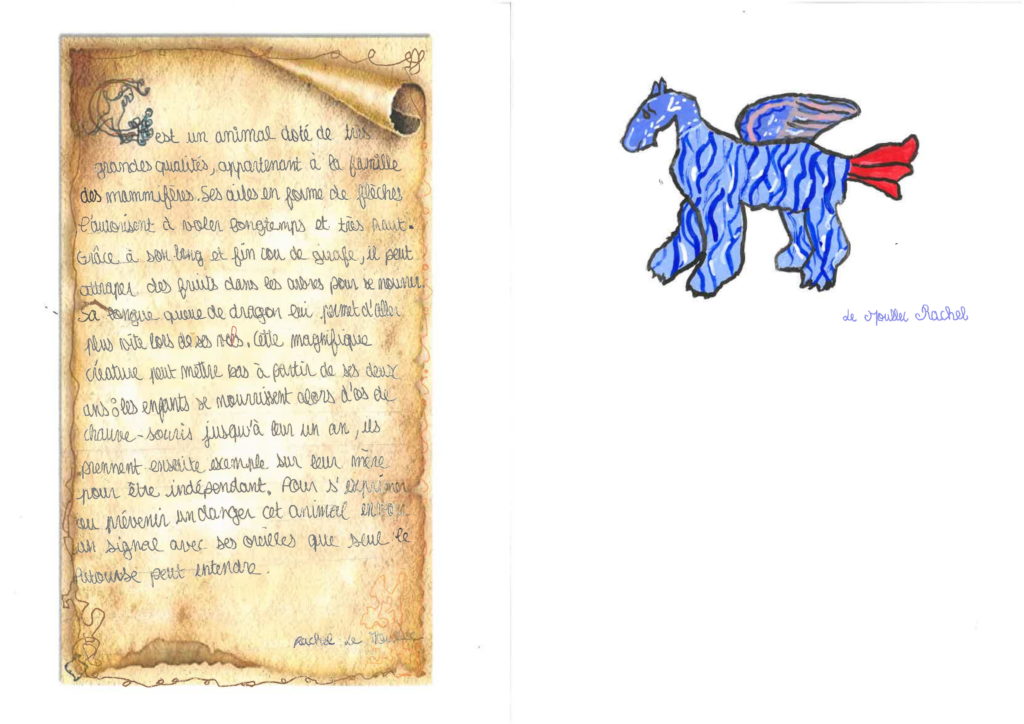 C'est un animal doté de très
grandes qualités, appartenant à la famille
des mammifères. Ses ailes en forme de flèches
l'autorisent à voler longtemps et très haut.
Grâce à son long et fin cou de girafe, il peut
attraper des fruits dans les arbres pour se nourrir.
Sa longue queue de dragon lui permet d'aller
plus vite lors de ses vols. Cette magnifique
créature peut mettre bas à partir de ses deux
ans : les enfants se nourrissent alors d'os de
chauve-souris jusqu'à leur un an, ils
prennent ensuite exemple sur leur mère
pour être indépendant. Pour s'exprimer
ou prévenir un danger cet animal envoi
un signal avec ses oreilles que seul le
peut entendre.
Rachel Le
Le Rachel